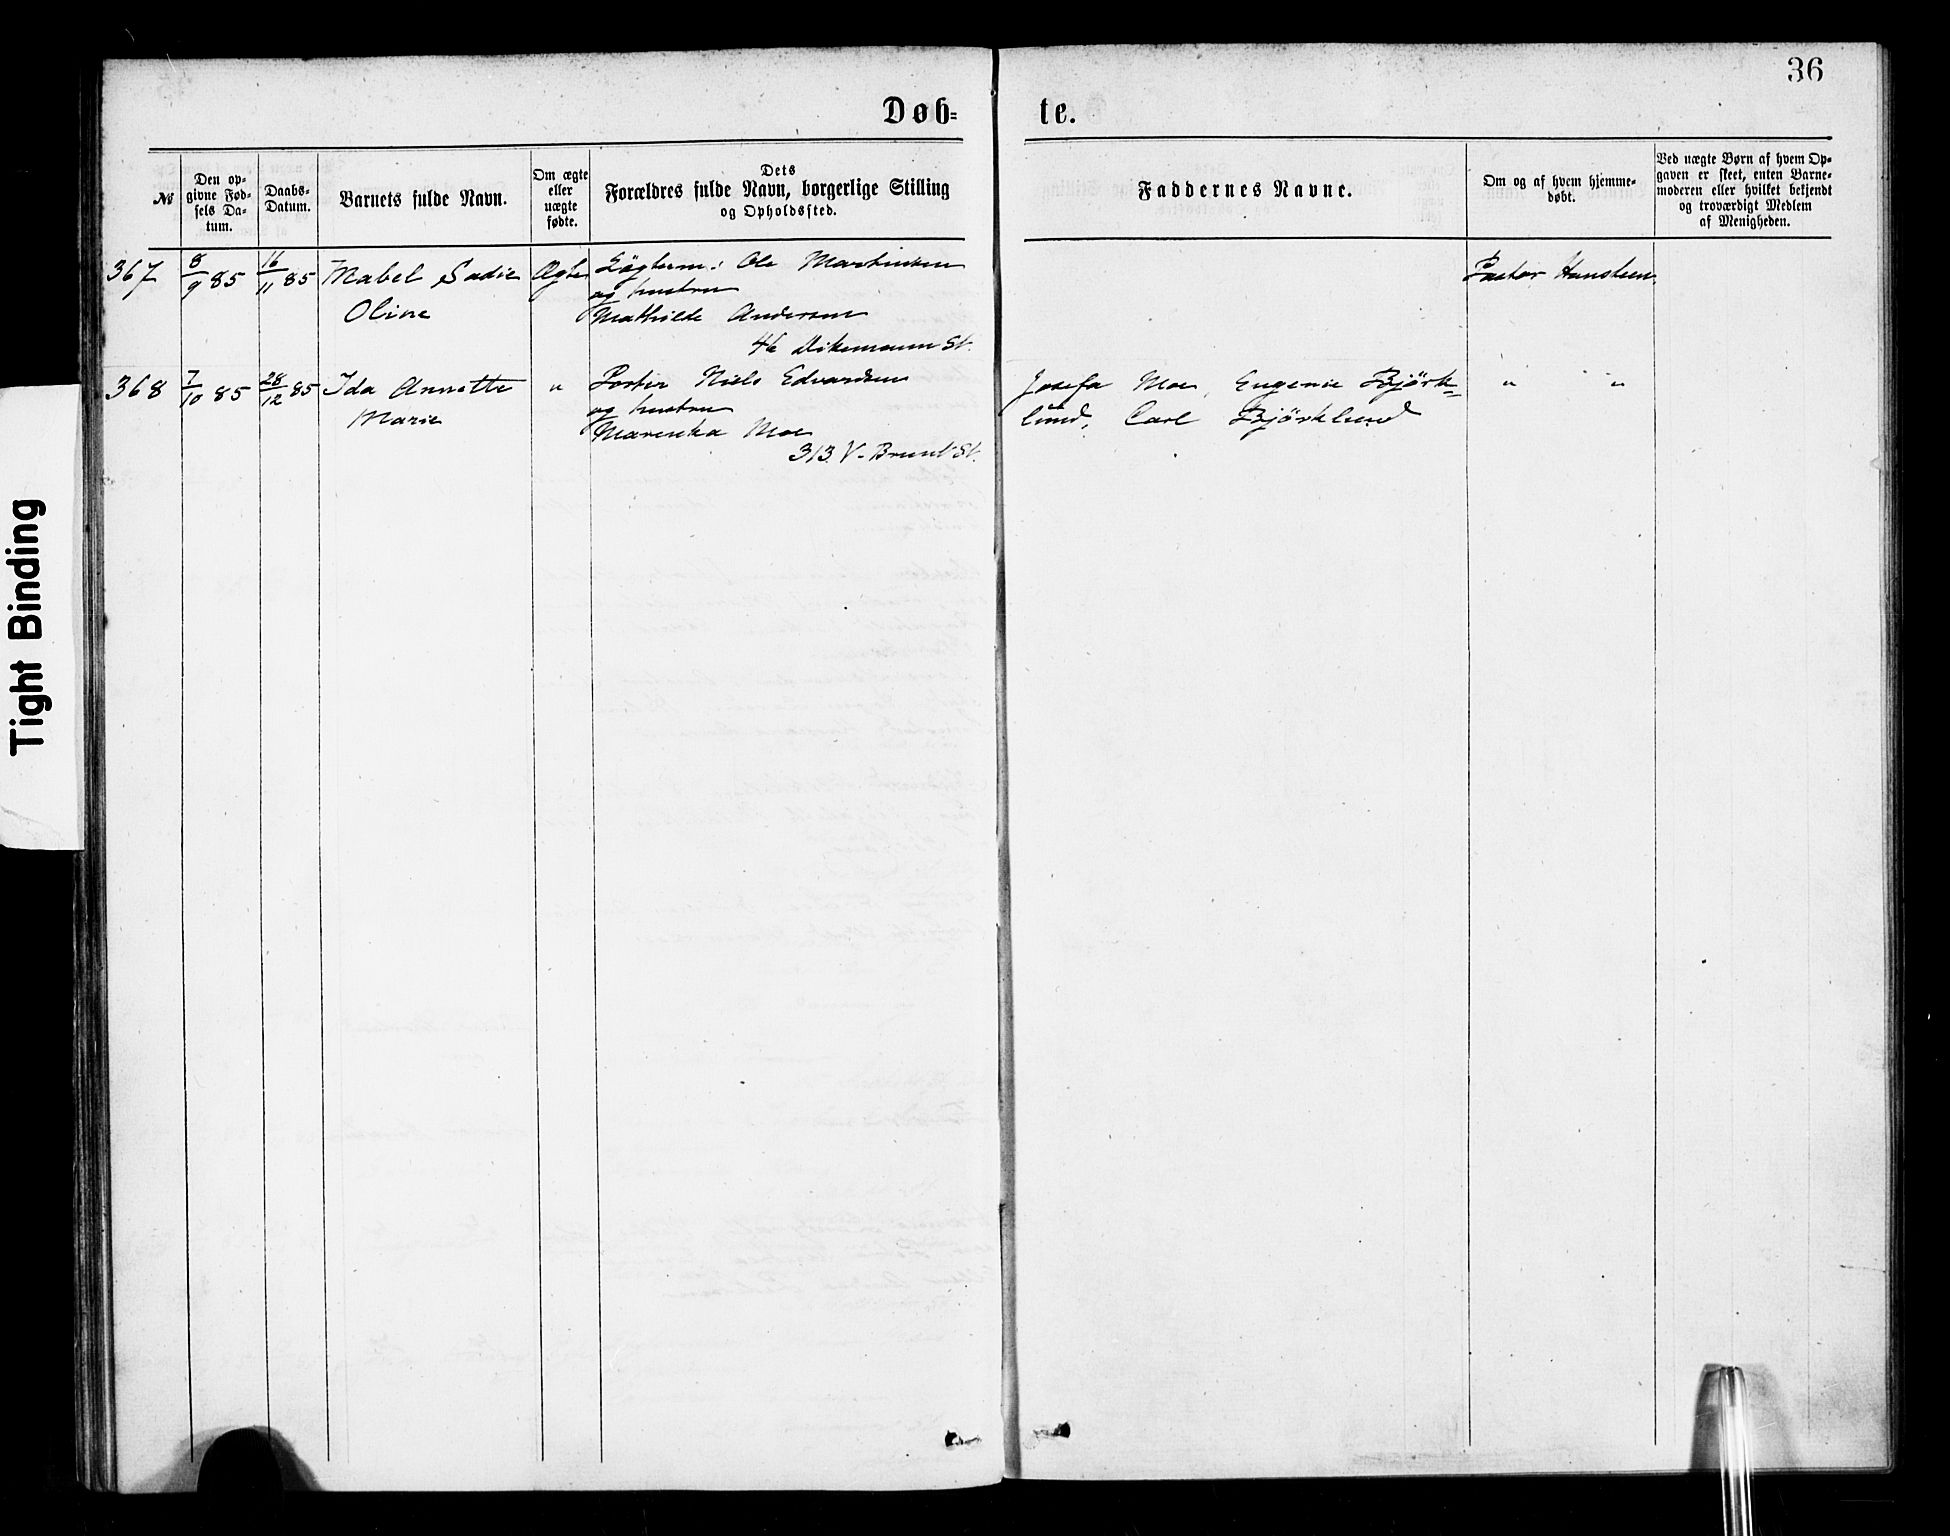 36
Døb=te.
№
Den op-
givne Fød-
sels Da-
tum.
Daabs-
Datum.
Barnets fulde Navn.
Om ægte
eller
uægte
fødte.
Dets
Forældres fulde Navn, borgerlige Stilling
og Opholdssted.
Faddernes Navne.
Om og af hvem hjemme-
døbt.
Ved uægte Børn af hvem Op-
gaven er skeet, enten Barne-
moderen eller hvilket bekjendt
og troværdigt Medlem
af Menigheden.
367 8/9 85 16/11 85 Mabel Sadie Ægte Ole Martinsen Pastor Hansteen.
og hustru
Oline Mathilde Andersen
46 Dikemann St.
368 7/10 85 28/12 85 Ida Annette " Niels Edvardsen Josefa Moe, Eugenie Björk= " "
og hustru
Marie Moe lund, Carl Björklund
313 V. Brunt St.
Tight Binding